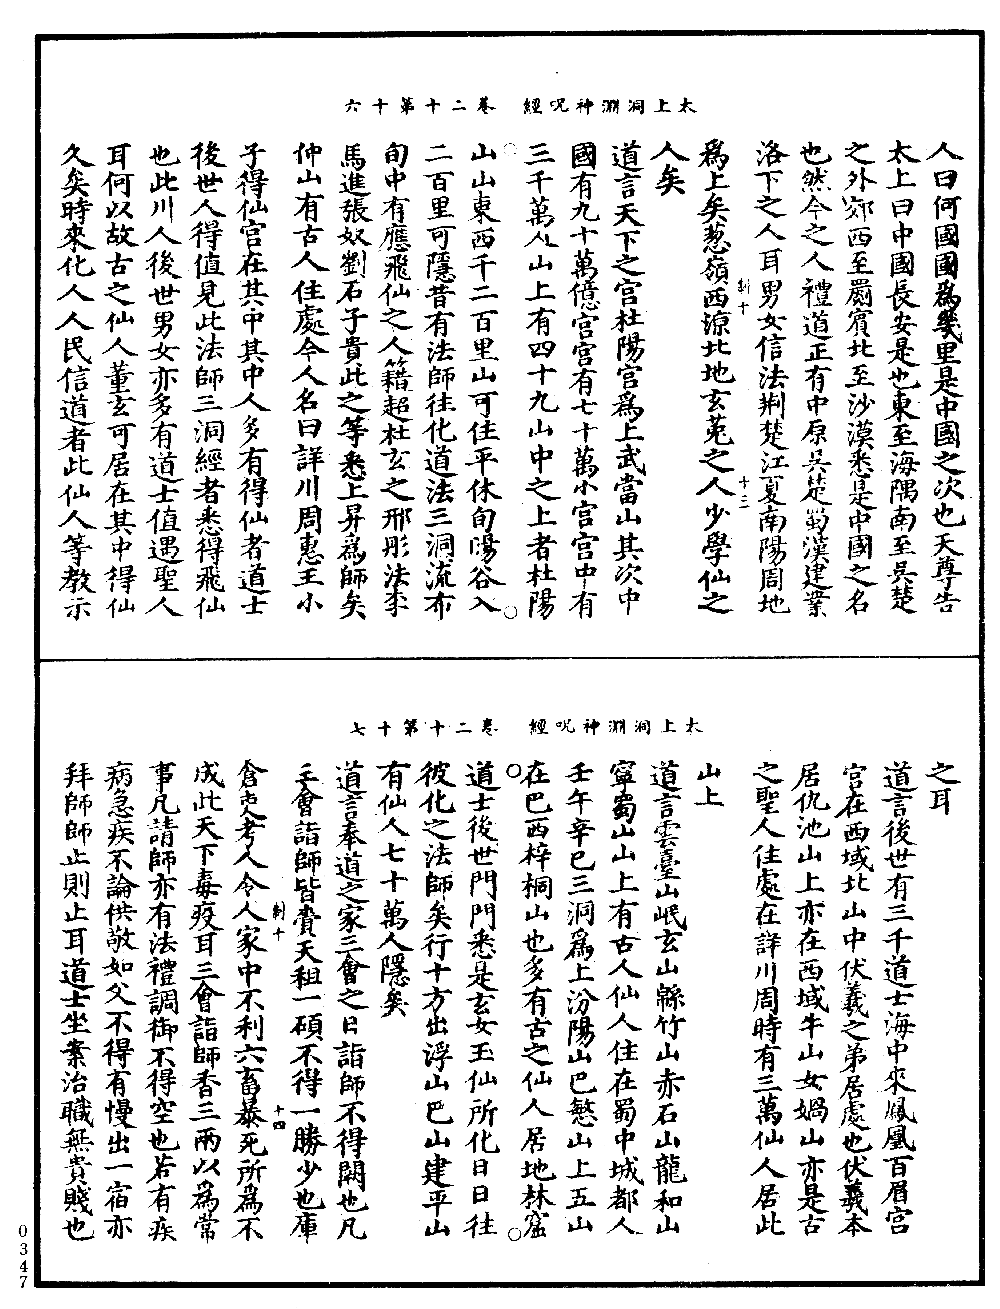 太上洞淵神呪經　卷二十第十六
人曰何國國爲幾里是中國之次也天尊告
太上曰中國長安是也東至海隅南至吳楚
之外郊西至罽賓北至沙漠悉是中國之名
也然今之人禮道正有中原吳楚蜀漢建業
洛下之人耳男女信法荆楚江夏南陽周地
制十
十三
爲上矣葱嶺西源北地玄菟之人少學仙之
人矣
道言天下之宫杜陽宫爲上武當山其次中
國有九十萬億宫宫有七十萬小宫宫中有
三千萬仙山上有四十九山中之上者杜陽
山山東西千二百里山可住平休旬陽谷入
二百里可隱昔有法師往化道法三洞流布
旬中有應飛仙之人籍超杜玄之邢彤法李
馬進張奴劉石子貴此之等悉上昇爲師矣
仲山有古人住處今人名曰詳川周惠王小
子得仙官在其中其中人多有得仙者道士
後世人得值見此法師三洞經者悉得飛仙
也此川人後世男女亦多有道士值遇聖人
耳何以故古之仙人董玄可居在其中得仙
久矣時來化人人民信道者此仙人等教示
太上洞淵神呪經　卷二十第十七
之耳
道言後世有三千道士海中來鳳凰百眉宫
宫在西域北山中伏羲之弟居處也伏羲本
居仇池山上亦在西域牛山女媧山亦是古
之聖人住處在詳川周時有三萬仙人居此
山上
道言雲臺山岷玄山緜竹山赤石山龍和山
寧蜀山山上有古人仙人住在蜀中城都人
壬午辛巳三洞爲上汾陽山巴慜山上五山
在巴西梓桐山也多有古之仙人居地林窟
道士後世門門悉是玄女玉仙所化日日往
彼化之法師矣行十方出浮山巴山建平山
有仙人七十萬人隱矣
道言奉道之家三會之日詣師不得闕也凡
三會詣師皆賷天租一碩不得一勝少也庫
制十
十四
倉吏考人令人家中不利六畜暴死所爲不
成此天下毒疫耳三會詣師香三兩以爲常
事凡請師亦有法禮調御不得空也若有疾
病急疾不論供敬如父不得有慢出一宿亦
拜師師止則止耳道士坐案治職無貴賤也
0347